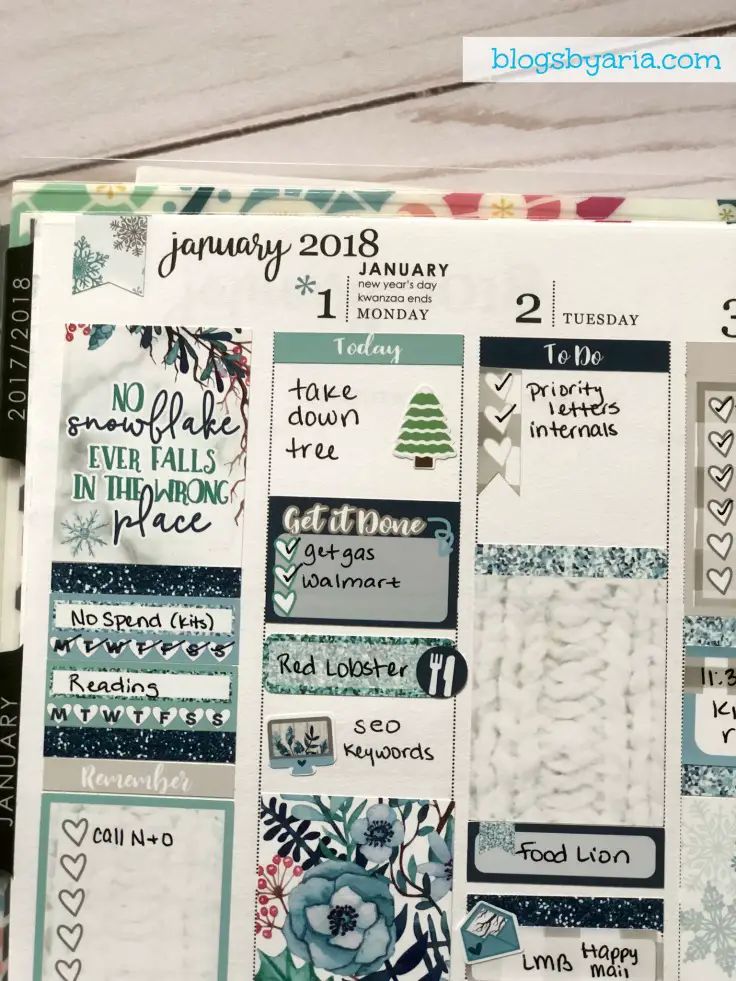 blogsbyaria.com
2017/2018
JANUARY
january 2018
NO
snowflake
EVER FALLS
IN THE WRONG
place
No Spend (kits)
M T W T F S S
Reading
M T W T F S S
Remember
call N+O
1
JANUARY
new year's day
kwanzaa ends
MONDAY
Today
take
down
tree
Get it Done
get gas
walmart
Red Lobster
seo
keywords
2
TUESDAY
To Do
priority
letters
internals
Food Lion
LMB Happy
Mail
3
11:3